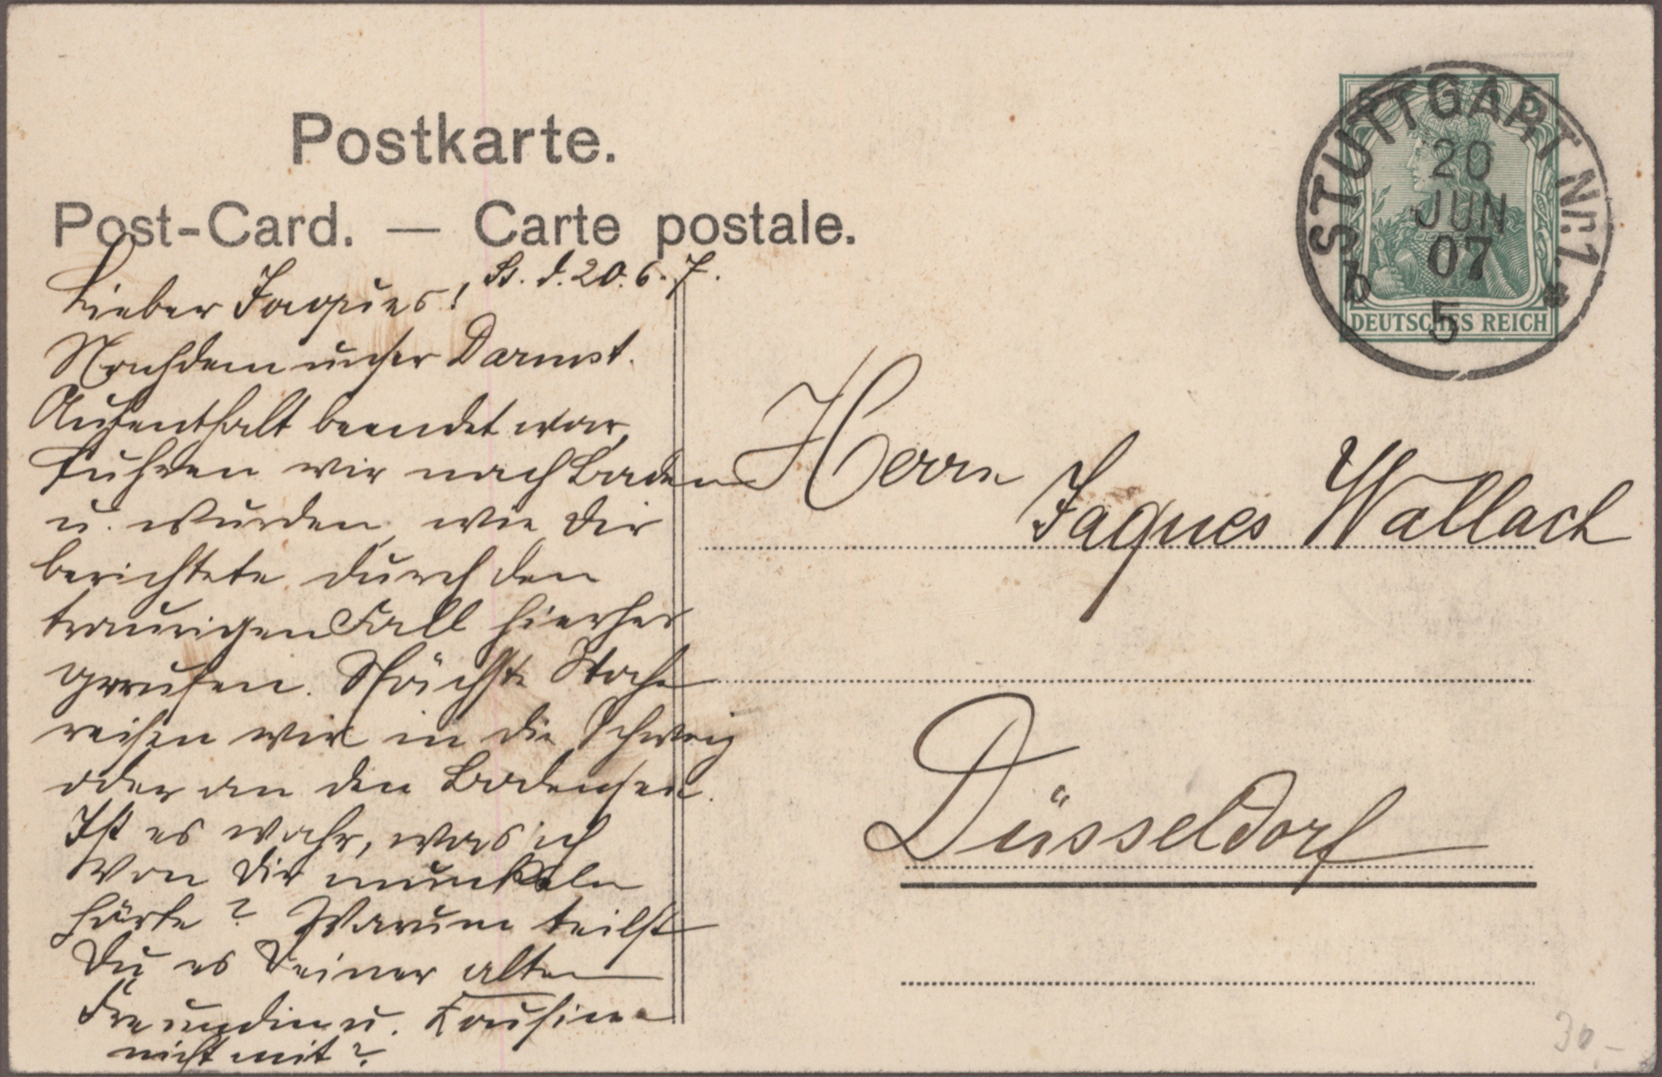 Postkarte.
Post-Card. — Carte postale.
STUTTGART Nr. 1
20
JUN
07
5
DEUTSCHES REICH
St. d. 20.6.7.
Lieber Jaques!
Nachdem unser Darmst.
Aufenthalt beendet war,
fuhren wir nach Baden
u. wurden, wie Dir
berichtete durch den
traurigen Fall hierher
gerufen. Nächste Woche
reisen wir in die Schweiz
oder an den Bodensee.
Ist es wahr, was ich
von Dir munkeln
hörte? Warum teilst
Du es Deiner alten
Freundin u. Kousine
nicht mit?
Herrn
Jaques Wallach
Düsseldorf
30,–